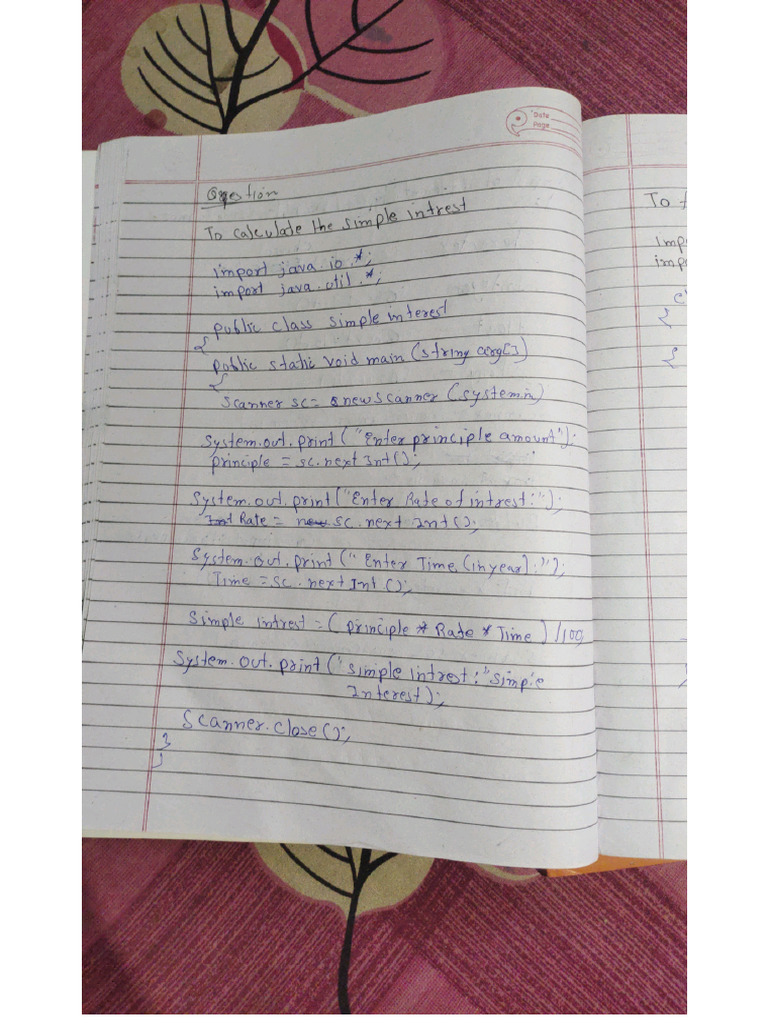 Date
Page
Question
To calculate the simple intrest
import java.io.*;
import java.util.*;
public class simple interest
{
public static void main (string arg[])
{
Scanner sc= new scanner (system.in)
System.out.print ("Enter principle amount");
principle = sc.next Int();
System.out.print ("Enter Rate of intrest:");
Rate = sc.next Int();
System.out.print (" Enter Time (in year) :");
Time = sc.next Int ();
Simple intrest = ( principle * Rate * Time ) /100;
System.out.print ("simple intrest:" simple
Interest);
Scanner.close();
}
}
To
imp
imp
{
{